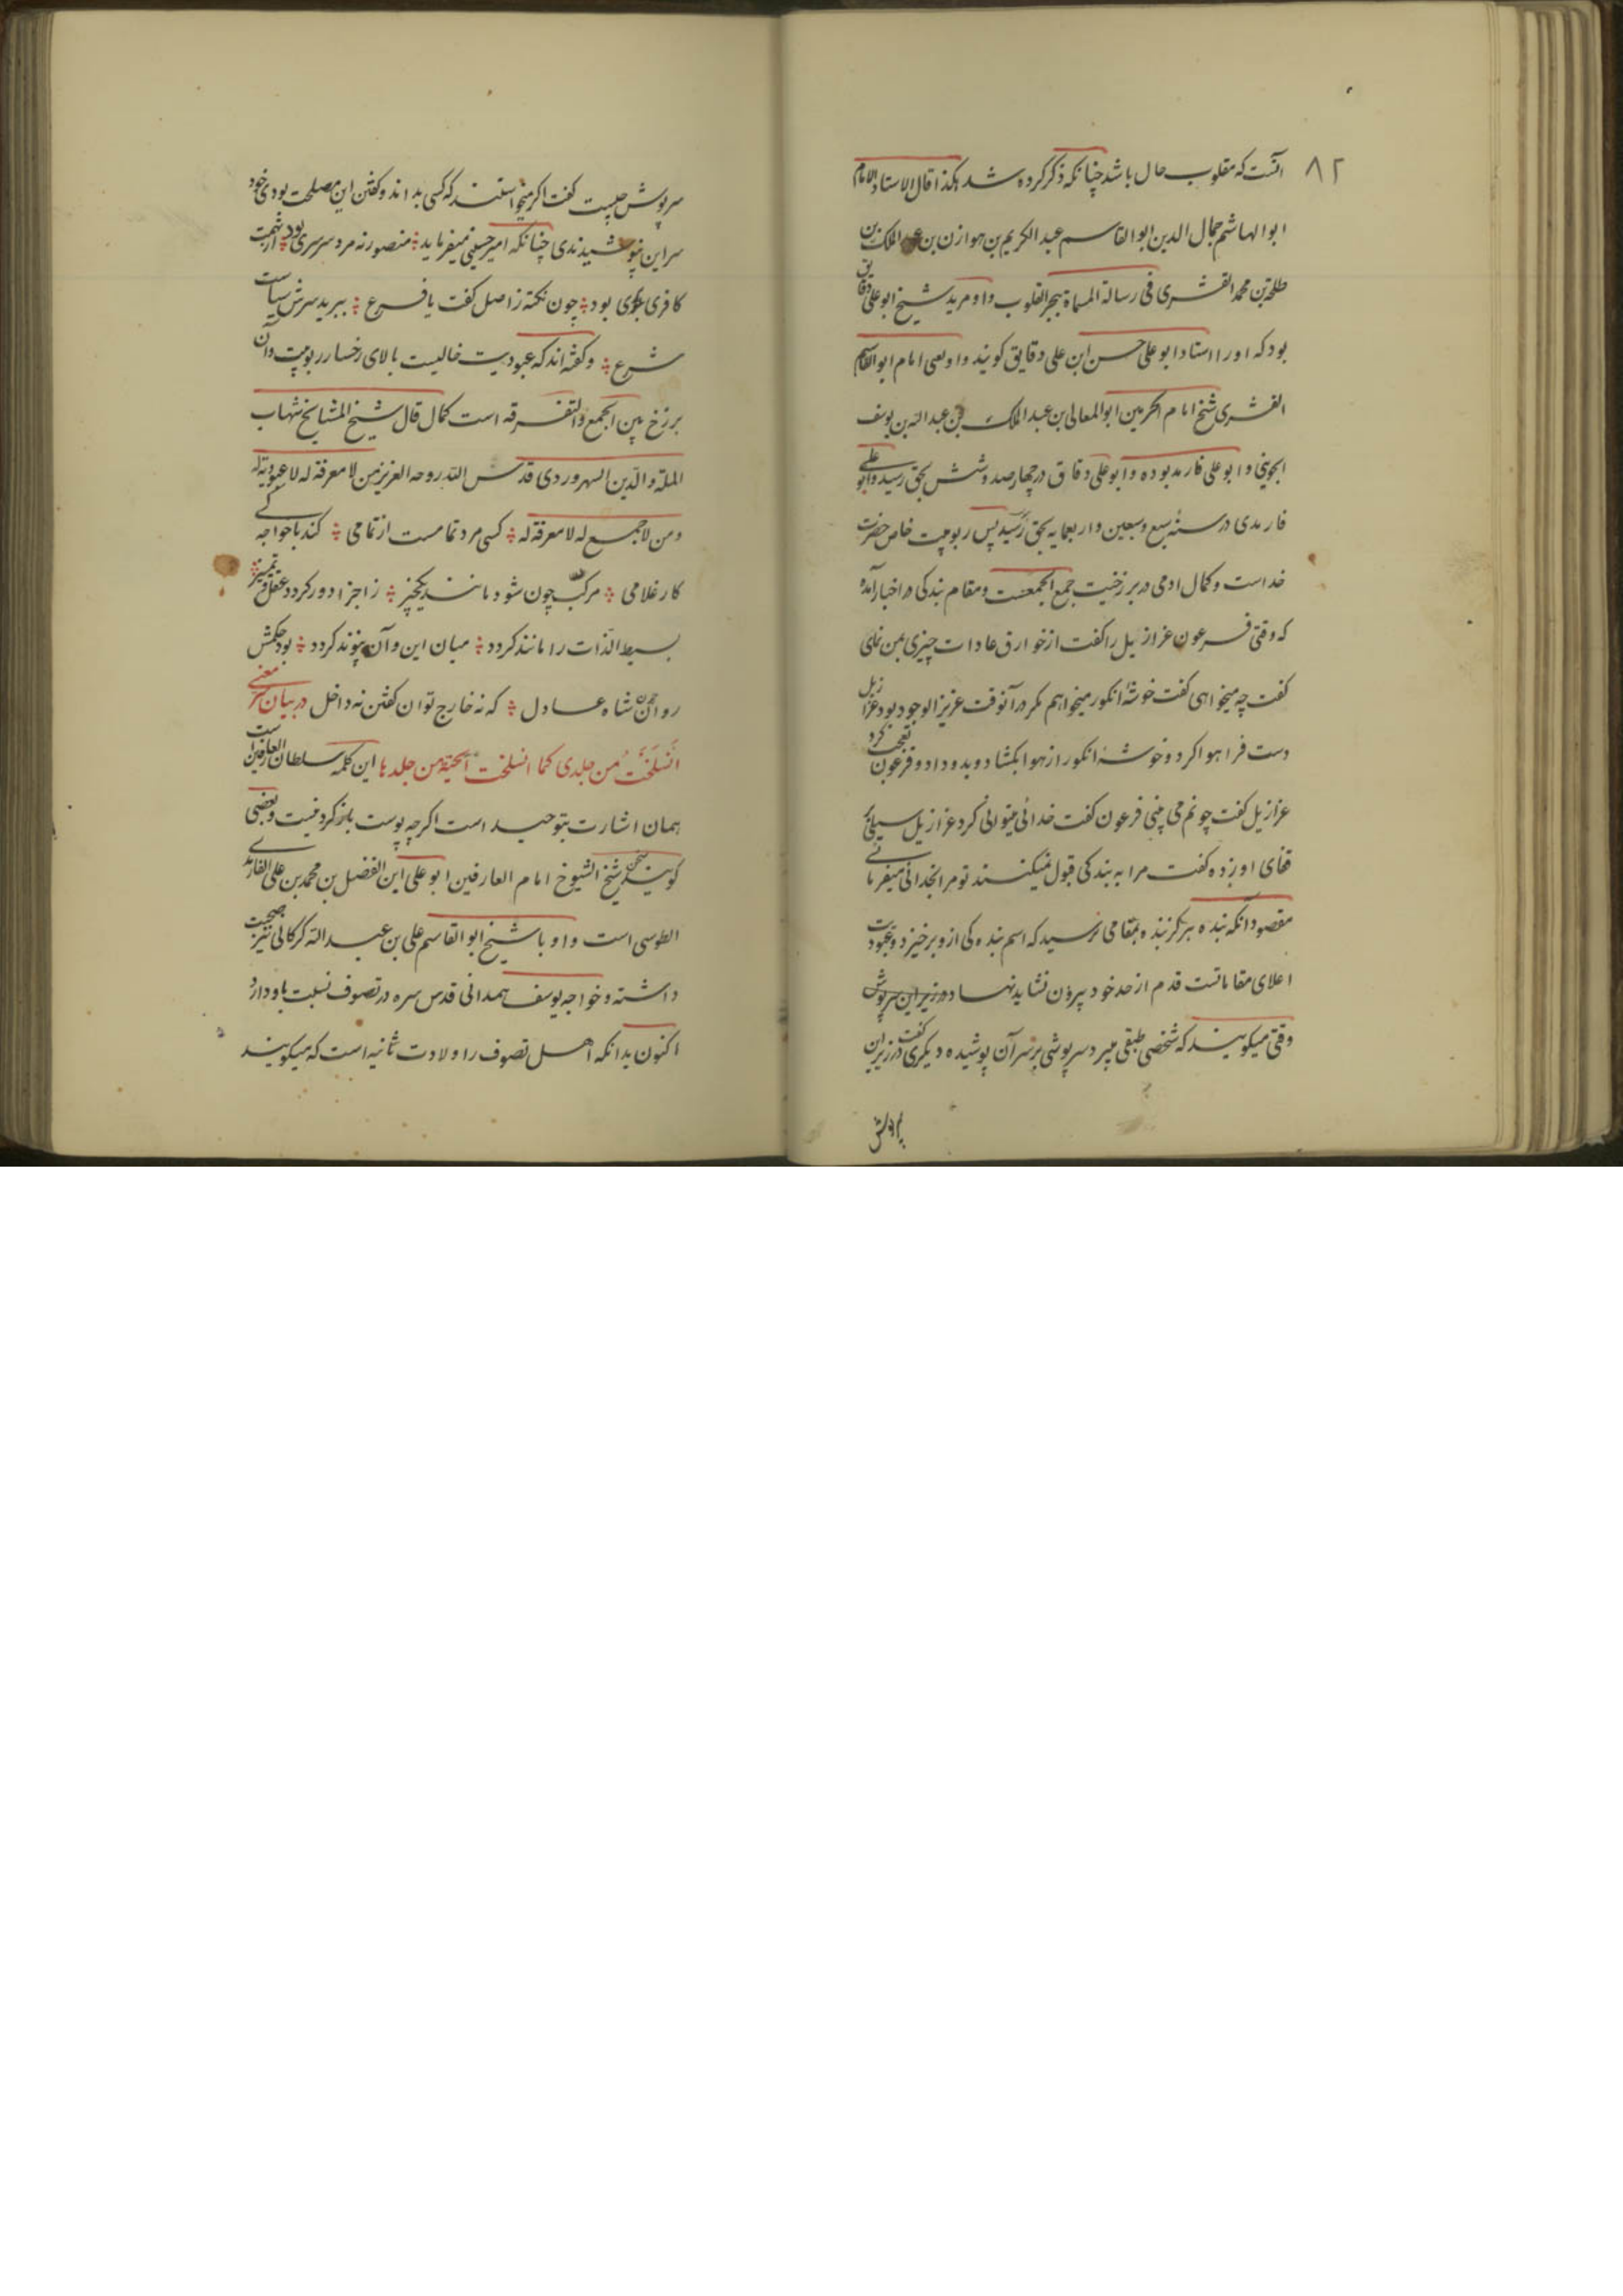 ۸۲
آنست که مقلوب حال باشد چنانکه ذکر کرده شد هکذا قال الاستاد الامام
ابوالهاشم جمال الدین ابوالقاسم عبدالکریم بن هوازن بن عبد الملک بن
طلحة بن محمد القشری فی رسالة المسماة ببحر القلوب و او مرید شیخ ابو علی دقایق
بود که او را استاد ابو علی حسن ابن علی دقایق کویند و او یعنی امام ابوالقاسم
القشری شیخ امام الحرمین ابوالمعالی بن عبد الملک بن عبدالله بن یوسف
الجوینی و ابو علی فارمد بوده و ابو علی دقاق در چهارصد و شش بحق رسید و ابو علی
فارمدی در سنه سبع و سبعین و اربعمایه بحق رسید پس ربوبیت خاص حضرت
خداست و کمال ادمی در برزخیت جمع الجمعست و مقام بندکی در اخبار آمده
که وقتی فرعون عزازیل را کفت از خوارق عادات چیزی بمن نمای
کفت چه میخواهی کفت خوشهٔ انکور میخواهم مکر در آنوقت عزیز الوجود بود عزازیل
دست فرا هوا کرد و خوشهٔ انکور از هوا بکشاد و بدو داد و فرعون تعجب کرد
عزازیل کفت چونم می بینی فرعون کفت خدائی میتوانی کرد عزازیل سیلئ بر
قفای او زده کفت مرا به بندکی قبول نمیکنند تو مرا بخدائی میفرمائی
مقصود آنکه بنده هرکز بنده بمقامی نرسید که اسم بنده کی از و برخیزد و عبودیت
اعلای مقاماتست قدم از حد خود بیرون نشاید نهاد در زیر این سرپوش
وقتی میکویند که شخصی طبقی میبرد سرپوشی بر سر آن پوشیده دیکری کفت در زیر این
سرپوش
سرپوش چیست کفت اکر میخواستند که کسی بداند و کفتن این مصلحت بودی خود
سر این نپوشیدندی چنانکه امیر حسینی میفرماید منصور نه مرد سرسری بود از تهمت
کافری بری بود چون نکته ز اصل کفت یا فرع ببرید سرش سیاست
شرع و کفته اند که عبودیت خالیست بالای رخسار ربوبیت و آن
برزخ بین الجمع و التفرقه است کمال قال شیخ المشایخ شهاب
الملة و الدین السهروردی قدس الله روحه العزیز من لا معرفة له لا عبودیة له
و من لا جمع له لا معرفة له کسی مرد تمامست از تمامی کند با خواجه کی
کار غلامی مرکب چون شود مانند یکچیز ز اجزا دور کردد عقل و تمییز
بسیط الذات را مانند کردد میان این و آن پیوند کردد بود حکمش
روان شاه عادل که نه خارج توان کفتن نه داخل در بیان سر معنی
انسلخت من جلدی کما انسلخت الحیة من جلدها این کلمه سلطان العارفین است
همان اشارت بتوحید است اکرچه پوست باز کرد نیست و بعضی
کویند سخن شیخ الشیوخ امام العارفین ابو علی ابن الفضل بن محمد بن علی الفارمدی
الطوسی است و او با شیخ ابوالقاسم علی بن عبدالله کرکانی نیز صحبت
داشته و خواجه یوسف همدانی قدس سره در تصوف نسبت باو دارد
اکنون بدانکه اهل تصوف را ولادت ثانیه است که میکویند